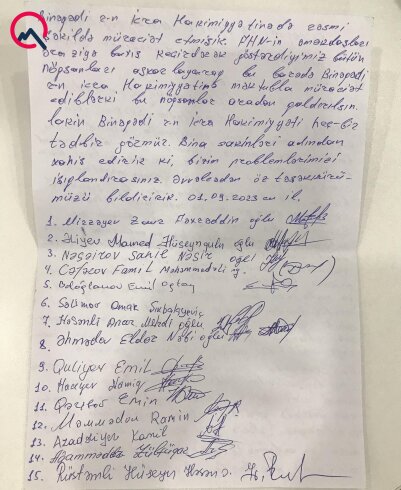 Binəqədi r-n İcra Hakimiyyətinədə rəsmi
şəkildə müraciət etmişik FHN-in əməkdaşları
əraziyə baxış keçirdərək göstərdiyimiz bütün
nöqsanları aşkarlayaraq bu barədə Binəqədi
r-n İcra Hakimiyyətinə məktubla müraciət
ediblərki bu nöqsanlar aradan qaldırılsın.
lakin Binəqədi r-n icra Hakimiyyəti heç-bir
tədbir görmür. Bina sakinləri adından
xahiş edirik ki, bizim problemlərimizi
işıqlandırasınız. Əvvəlcədən öz təşəkkürü-
müzü bildiririk. 01.09.2023 cü il.
1. Mirzəyev Zaur Fəxrəddin oğlu
2. Əliyev Məmməd Hüseynqulu oğlu
3. Nəsirov Sahil Nəsir oğlu
4. Cəfərov Famil Məhəmmədəli
5. Emil Oqtay
6. Səlimov
7. Həsənli Anar Mehdi oğlu
8. Əhmədov Eldar Nəbi oğlu
9. Quliyev Emil
10. Namiq
11. Qəribov Emin
12. Məmmədov Ramin
13. Kamil
14. Zülfüqar
15. Rüstəmli Hüseyn